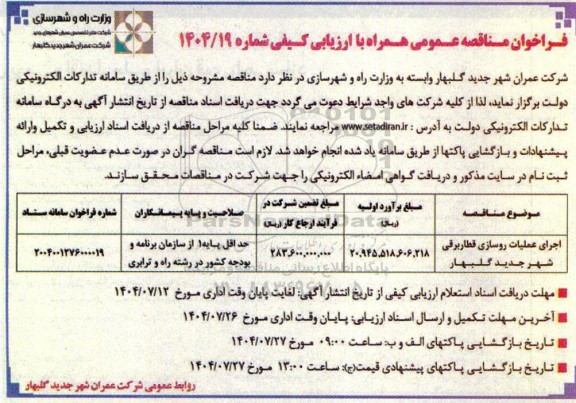 وزارت راه و شهرسازی
شرکت عمران شهر جدید گلبهار
فراخوان مناقصه عمومی همراه با ارزیابی کیفی شماره ۱۴۰۴/۱۹
شرکت عمران شهر جدید گلبهار وابسته به وزارت راه و شهرسازی در نظر دارد مناقصه مشروحه ذیل را از طریق سامانه تدارکات الکترونیکی
دولت برگزار نماید، لذا از کلیه شرکت های واجد شرایط دعوت می گردد جهت دریافت اسناد مناقصه از تاریخ انتشار آگهی به درگاه سامانه
تدارکات الکترونیکی دولت به آدرس : www.setadiran.ir مراجعه نمایند. ضمنا کلیه مراحل مناقصه از دریافت اسناد ارزیابی و تکمیل وارائه
پیشنهادات و بازگشایی پاکتها از طریق سامانه یاد شده انجام خواهد شد. لازم است مناقصه گران در صورت عدم عضویت قبلی، مراحل
ثبت نام در سایت مذکور و دریافت گواهی امضاء الکترونیکی را جهت شرکت در مناقصات محقق سازند.
موضوع مناقصه
مبلغ برآورد اولیه (ریال)
مبلغ تضمین شرکت در فرآیند ارجاع کار (ریال)
صلاحیت و پایه پیمانکاران
شماره فراخوان سامانه ستاد
اجرای عملیات روسازی قطاربرقی شهر جدید گلبهار
۲۰،۹۴۵،۵۱۸،۶۰۶،۲۱۸
۲۸۳،۶۰۰،۰۰۰،۰۰۰
حد اقل پایه۱ از سازمان برنامه و بودجه کشور در رشته راه و ترابری
۲۰۰۴۰۰۱۲۷۶۰۰۰۰۱۹
مهلت دریافت اسناد استعلام ارزیابی کیفی از تاریخ انتشار آگهی: لغایت پایان وقت اداری مورخ ۱۴۰۴/۰۷/۱۲
آخرین مهلت تکمیل و ارسال اسناد ارزیابی: پایان وقت اداری مورخ ۱۴۰۴/۰۷/۲۶
تاریخ بازگشایی پاکتهای الف و ب: ساعت ۰۹:۰۰ مورخ ۱۴۰۴/۰۷/۲۷
تاریخ بازگشایی پاکتهای پیشنهادی قیمت(ج): ساعت ۱۳:۰۰ مورخ ۱۴۰۴/۰۷/۲۷
روابط عمومی شرکت عمران شهر جدید گلبهار